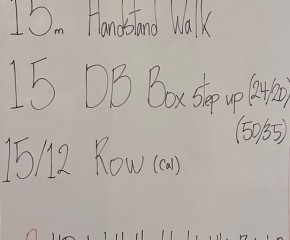 15m Handstand Walk
15 DB Box Step up (24/20)
(50/35)
15/12 Row (cal)